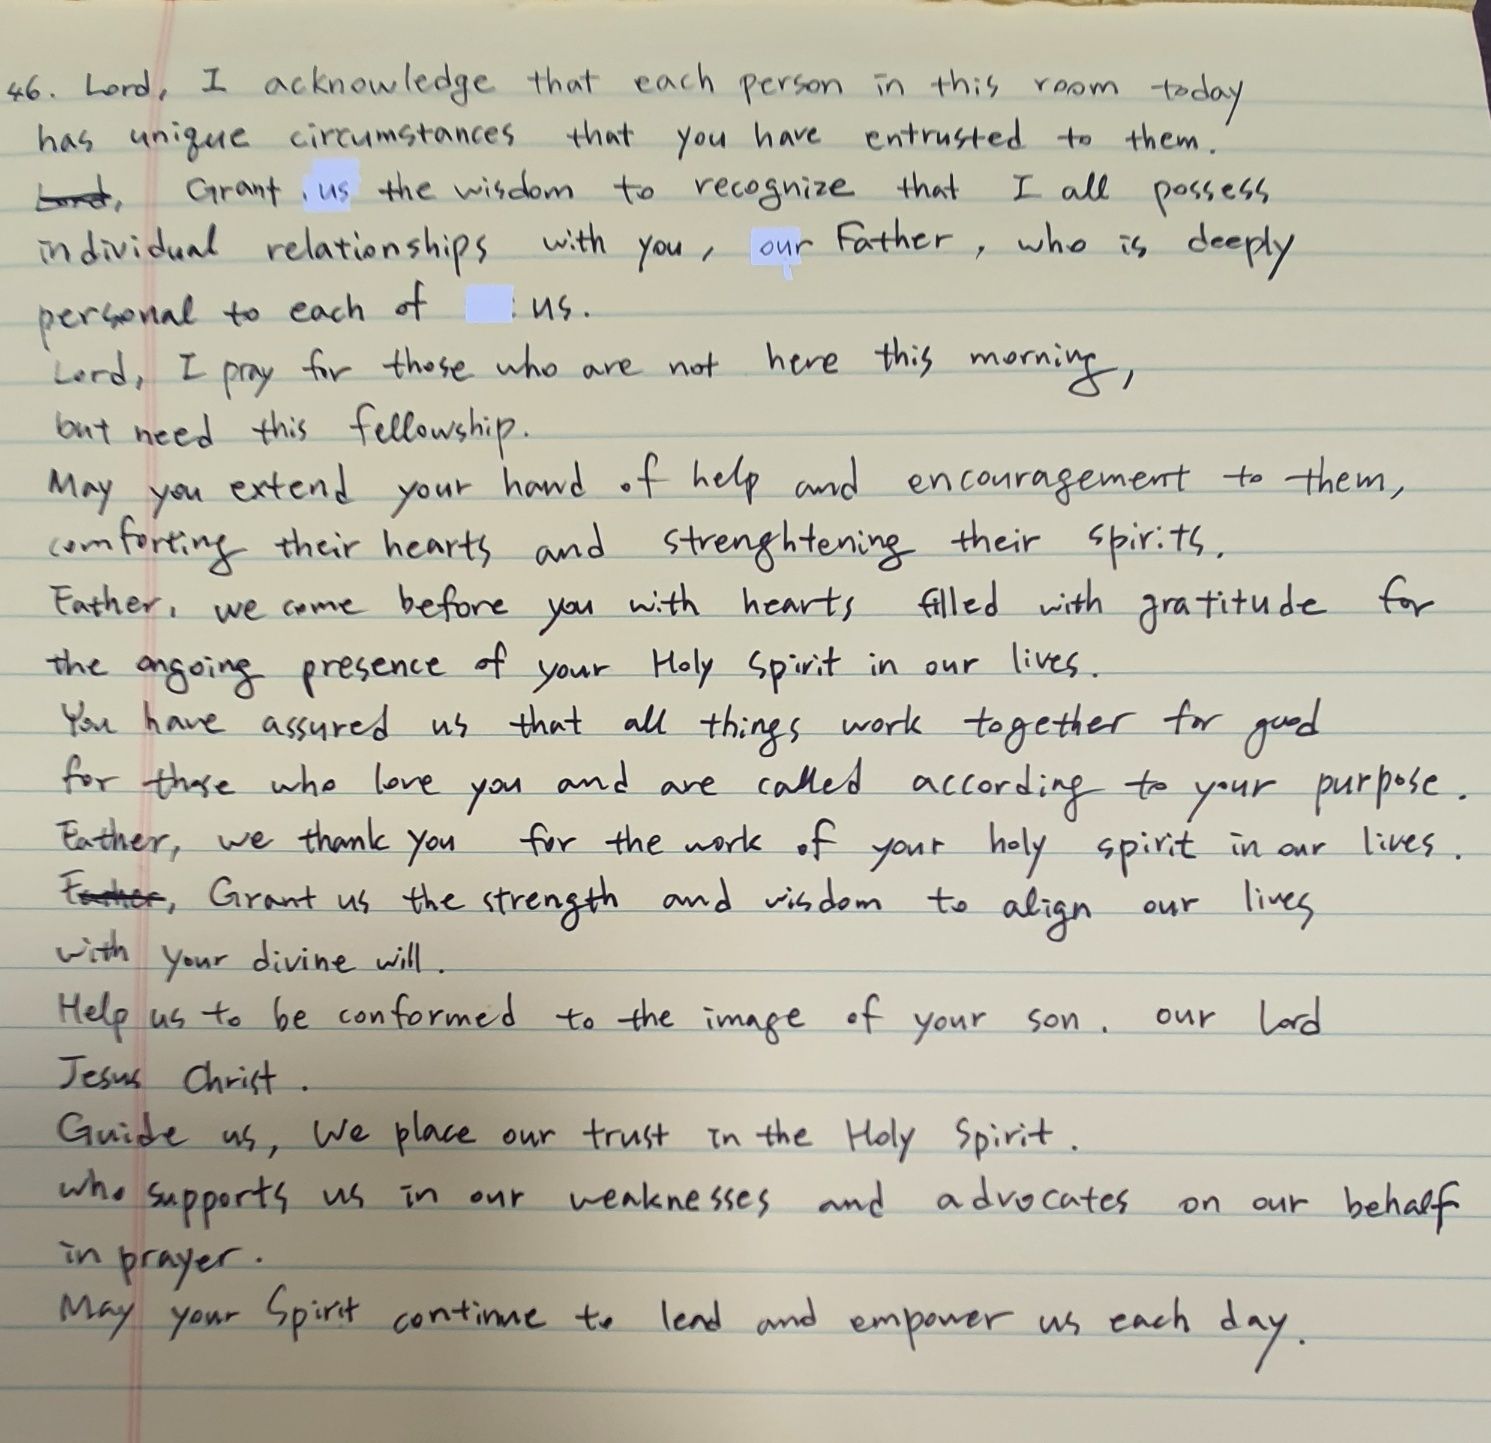 46. Lord, I acknowledge that each person in this room today
has unique circumstances that you have entrusted to them.
Lord, Grant us the wisdom to recognize that I all possess
individual relationships with you, our Father, who is deeply
personal to each of us.
Lord, I pray for those who are not here this morning,
but need this fellowship.
May you extend your hand of help and encouragement to them,
comforting their hearts and strenghtening their spirits.
Father, we come before you with hearts filled with gratitude for
the ongoing presence of your Holy Spirit in our lives.
You have assured us that all things work together for good
for those who love you and are called according to your purpose.
Father, we thank you for the work of your holy spirit in our lives.
Father, Grant us the strength and wisdom to align our lives
with your divine will.
Help us to be conformed to the image of your son. our Lord
Jesus Christ.
Guide us, We place our trust in the Holy Spirit.
who supports us in our weaknesses and advocates on our behalf
in prayer.
May your Spirit continue to lead and empower us each day.